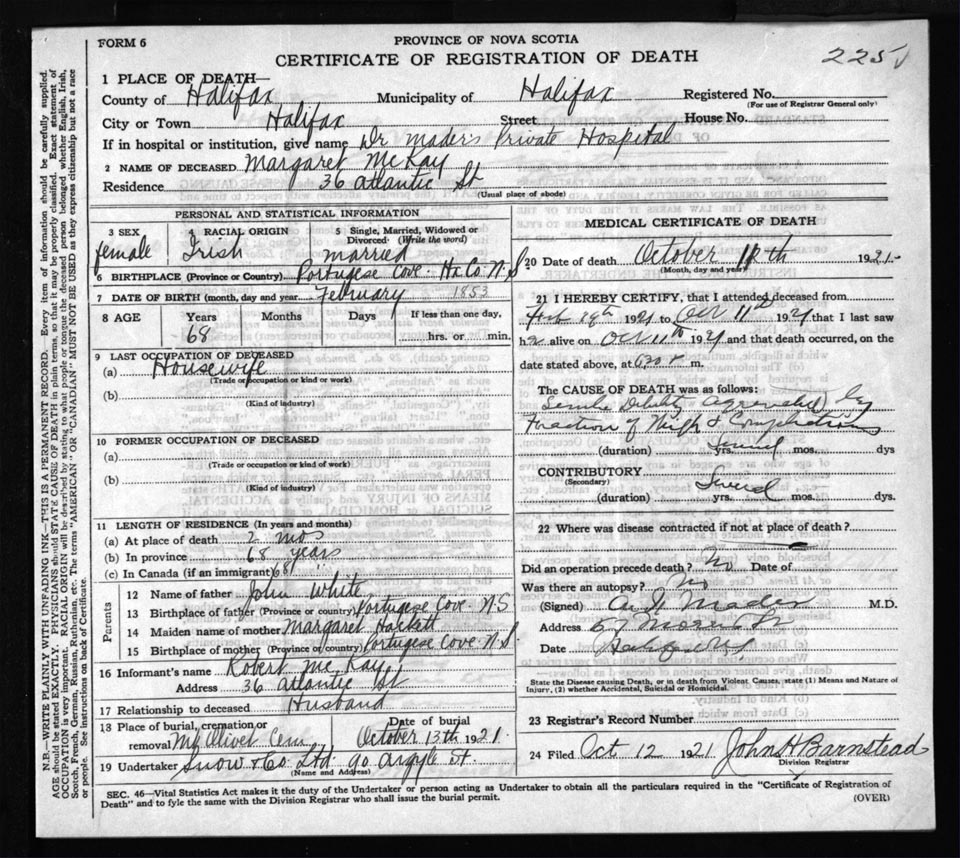 FORM 6
PROVINCE OF NOVA SCOTIA
2251
CERTIFICATE OF REGISTRATION OF DEATH
1 PLACE OF DEATH—
County of Halifax Municipality of Halifax Registered No.
(For use of Registrar General only)
City or Town Halifax Street House No.
If in hospital or institution, give name Dr Mader's Private Hospital
2 NAME OF DECEASED Margaret McKay
Residence 36 Atlantic St
(Usual place of abode)
PERSONAL AND STATISTICAL INFORMATION
3 SEX 4 RACIAL ORIGIN 5 Single, Married, Widowed or Divorced. (Write the word)
female Irish married
6 BIRTHPLACE (Province or Country) Portugese Cove. Ha Co. N.S.
7 DATE OF BIRTH (month, day and year February 1853
8 AGE Years Months Days If less than one day,
68 hrs. or min.
9 LAST OCCUPATION OF DECEASED
(a) Housewife
(Trade or occupation or kind or work)
(b)
(Kind of industry)
10 FORMER OCCUPATION OF DECEASED
(a)
(Trade or occupation or kind or work)
(b)
(Kind of industry)
11 LENGTH OF RESIDENCE (In years and months)
(a) At place of death 2 mos
(b) In province 68 years
(c) In Canada (if an immigrant) 68 "
Parents
12 Name of father John White
13 Birthplace of father (Province or country) Portugese Cove. N.S
14 Maiden name of mother Margaret Hackett
15 Birthplace of mother (Province or country) Portugese Cove N.S.
16 Informant's name Robert McKay
Address 36 Atlantic St
17 Relationship to deceased Husband
18 Place of burial, cremation or removal Mt Olivet Cem Date of burial October 13th 1921.
19 Undertaker Snow & Co Ltd. 90 Argyle St.
(Name and Address)
MEDICAL CERTIFICATE OF DEATH
20 Date of death October 12th 1921-
(Month, day and year)
21 I HEREBY CERTIFY, that I attended deceased from
1921 to Oct 11th 1921 that I last saw
her alive on Oct 11th 1921 and that death occurred, on the
date stated above, at 630 m.
The CAUSE OF DEATH was as follows:
Senile Debility aggravated by
Fraction of Thigh & Complications
(duration) yrs. Several mos. dys
CONTRIBUTORY
(Secondary)
(duration) yrs. mos. dys.
22 Where was disease contracted if not at place of death?
Did an operation precede death? No Date of
Was there an autopsy? No
(Signed) A I Mader M.D.
Address 57 Morris St
Date
State the Disease causing Death, or in death from Violent Causes, state (1) Means and Nature of
Injury, (2) whether Accidental, Suicidal or Homicidal.
23 Registrar's Record Number
24 Filed Oct 12 1921 John H Barnstead
Division Registrar
SEC. 46—Vital Statistics Act makes it the duty of the Undertaker or person acting as Undertaker to obtain all the particulars required in the "Certificate of Registration of
Death" and to fyle the same with the Division Registrar who shall issue the burial permit.
(OVER)
N.B.—WRITE PLAINLY WITH UNFADING INK—THIS IS A PERMANENT RECORD. Every item of information should be carefully supplied.
AGE should be stated EXACTLY. PHYSICIANS should STATE CAUSE OF DEATH in plain terms, so that it may be properly classified. Exact statement of
OCCUPATION is very important. RACIAL ORIGIN will be described by stating to what people or tongue the deceased person belonged, whether English, Irish,
Scotch, French, German, Russian, Ruthenian, etc. The terms "AMERICAN" OR "CANADIAN" MUST NOT BE USED as they express citizenship but not a race
or people. See instructions on back of Certificate.